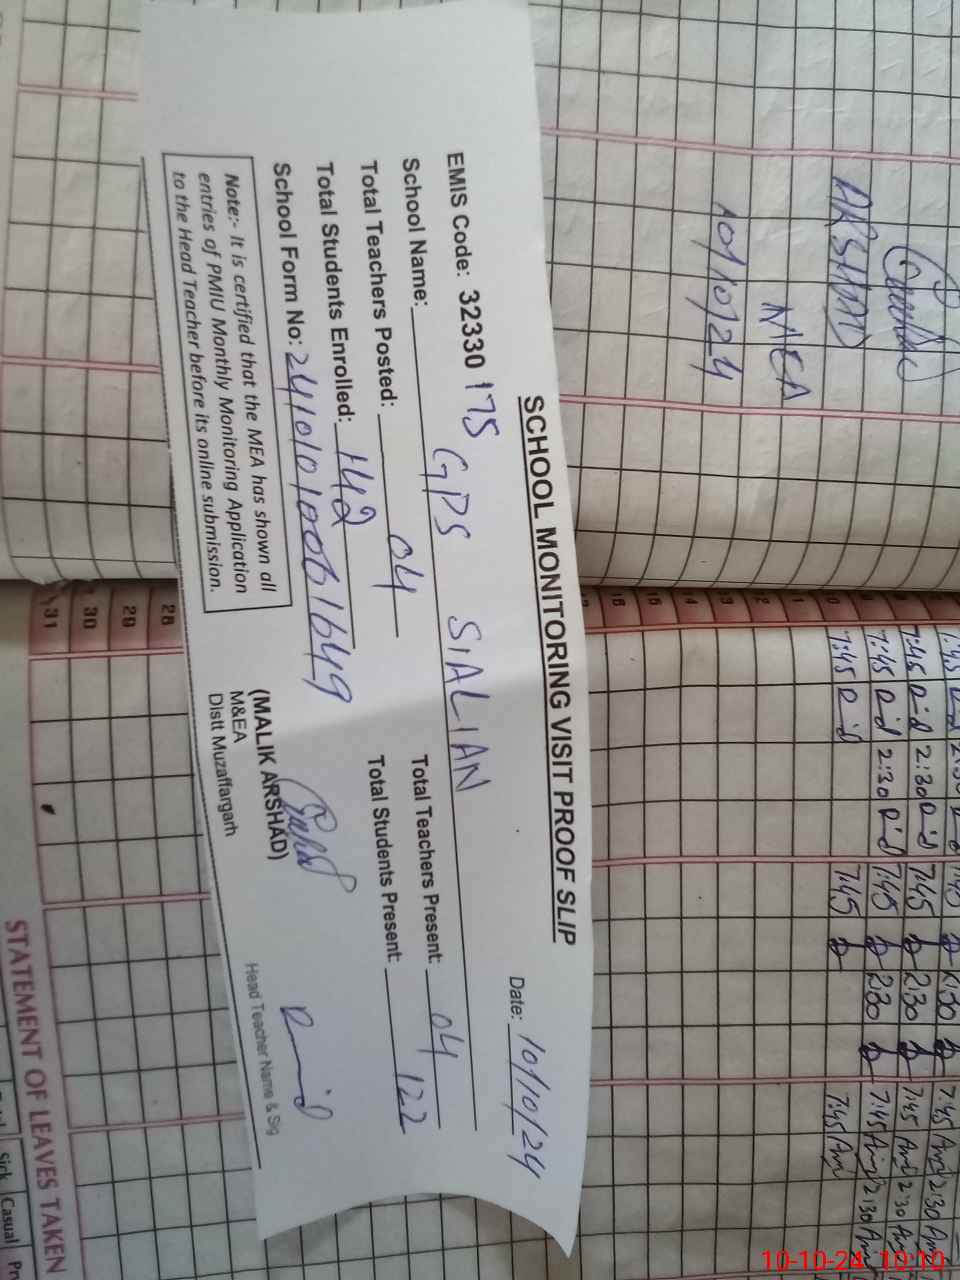 SCHOOL MONITORING VISIT PROOF SLIP
Date: 10/10/24
EMIS Code: 32330 175
School Name: GPS SIALIAN
Total Teachers Posted: 04 Total Teachers Present: 04
Total Students Enrolled: 142 Total Students Present: 122
School Form No: 24101010061649
Note:- It is certified that the MEA has shown all
entries of PMIU Monthly Monitoring Application
to the Head Teacher before its online submission.
(MALIK ARSHAD)
M&EA
Distt Muzaffargarh
Head Teacher Name & Sig
ARSHAD
MEA
10/10/24
16
15
14
13
12
11
10 7:45 7:45 7:45
7:45 2:30 7:45 2:30 7:45 2:30
7:45 2:30 7:45 2:30 7:45 2:30
7:45 2:30 7:45 2:30 7:45 2:30
28
29
30
31
STATEMENT OF LEAVES TAKEN
Sick Casual
10-10-24 10:10